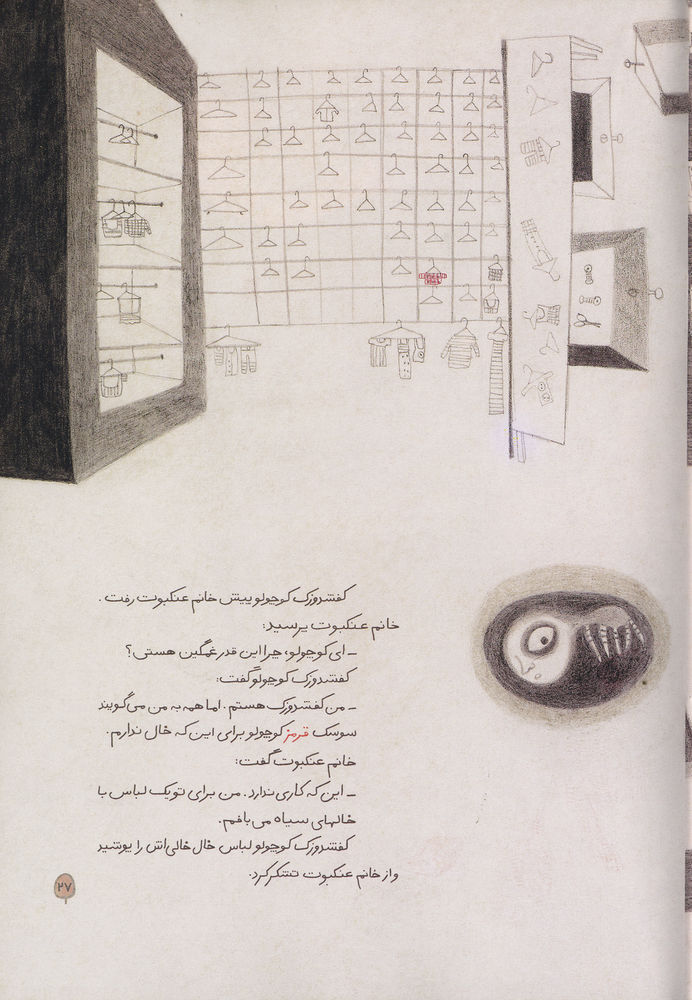 کفشدوزک کوچولو پیش خانم عنکبوت رفت.
خانم عنکبوت پرسید:
ـ ای کوچولو، چرا این قدر غمگین هستی؟
کفشدوزک کوچولو گفت:
ـ من کفشدوزک هستم. اما همه به من می‌گویند
سوسک قرمز کوچولو برای این که خال ندارم.
خانم عنکبوت گفت:
ـ این که کاری ندارد. من برای تو یک لباس با
خالهای سیاه می‌بافم.
کفشدوزک کوچولو لباس خال خالی‌اش را پوشید
و از خانم عنکبوت تشکر کرد.
۲۷